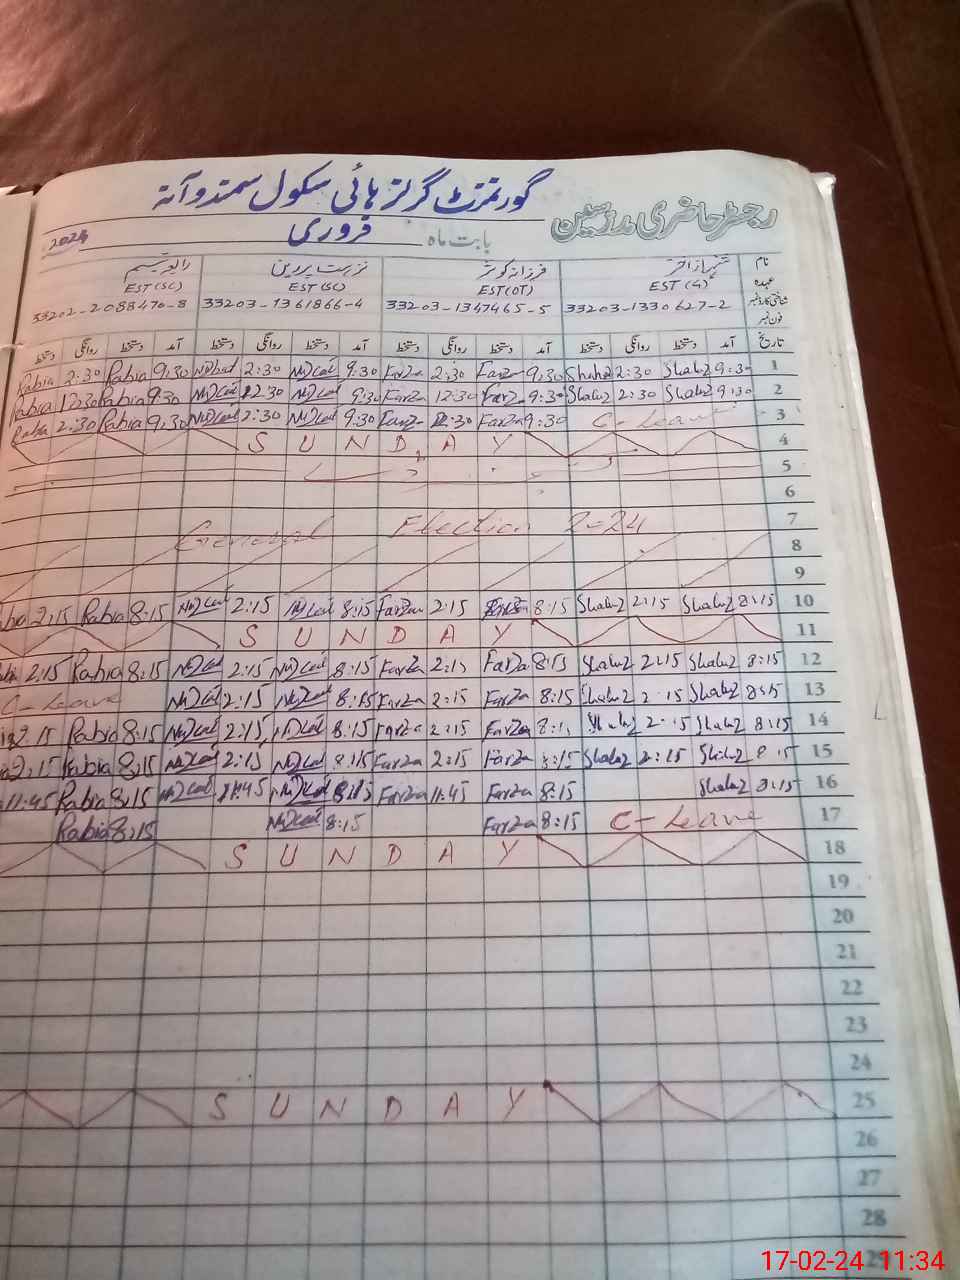 گورنمنٹ گرلز ہائی سکول سمندوآنہ
رجسٹر حاضری مدرسین
بابت ماہ فروری 2024
نام شہناز اختر فرزانہ کوثر نزہت پروین رابعہ تبسم
عہدہ EST(G) EST(OT) EST(SC) EST(SC)
شناختی کارڈ نمبر 33203-1330627-2 33203-1347465-5 33203-1361866-4 33202-2088470-8
فون نمبر
تاریخ آمد دستخط روانگی دستخط آمد دستخط روانگی دستخط آمد دستخط روانگی دستخط آمد دستخط روانگی دستخط
Rabia 2:30 Rabia 9:30 2:30 9:30 Farza 2:30 Farza 9:30 Shahz 2:30 Shahz 9:30 1
Rabia 12:30 Rabia 9:30 12:30 9:30 Farza 12:30 Farza 9:30 Shahz 2:30 Shahz 9:30 2
Rabia 2:30 Rabia 9:30 2:30 9:30 Farza 2:30 Farza 9:30 C-Leave 3
SUNDAY 4
5
6
General Election 2024 7
8
9
2:15 Rabia 8:15 2:15 8:15 Farza 2:15 Farza 8:15 Shahz 2:15 Shahz 8:15 10
SUNDAY 11
2:15 Rabia 8:15 2:15 8:15 Farza 2:15 Farza 8:15 Shahz 2:15 Shahz 8:15 12
C-Leave 2:15 8:15 Farza 2:15 Farza 8:15 Shahz 2:15 Shahz 8:15 13
2:15 Rabia 8:15 2:15 8:15 Farza 2:15 Farza 8:15 Shahz 2:15 Shahz 8:15 14
2:15 Rabia 8:15 2:15 8:15 Farza 2:15 Farza 8:15 Shahz 2:15 Shahz 8:15 15
11:45 Rabia 8:15 11:45 8:15 Farza 11:45 Farza 8:15 Shahz 8:15 16
Rabia 8:15 8:15 Farza 8:15 C-Leave 17
SUNDAY 18
19
20
21
22
23
24
SUNDAY 25
26
27
28
29
17-02-24 11:34